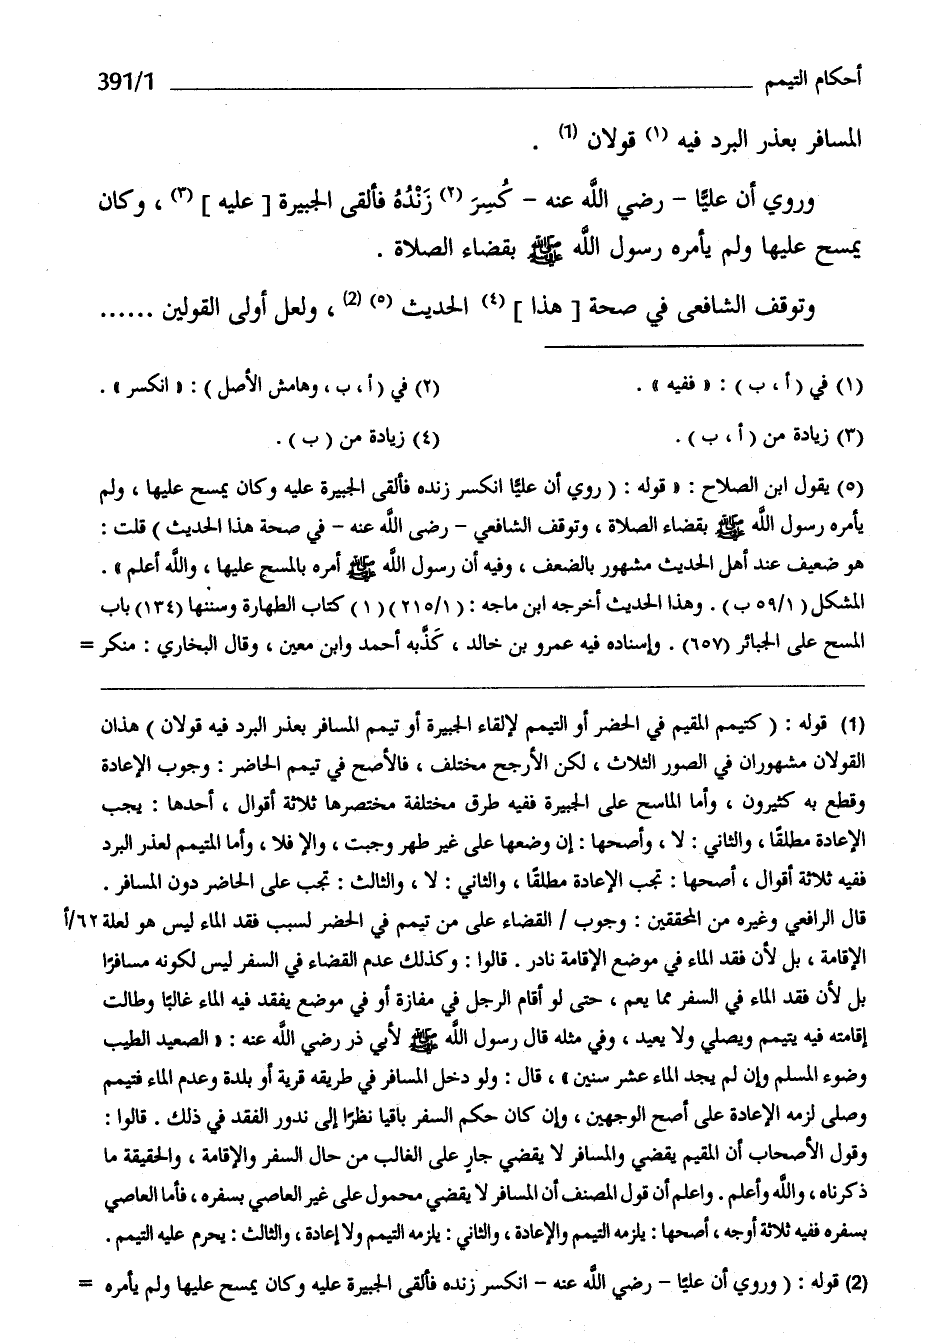 أحكام التيمم 391/1
المسافر بعذر البرد فيه (١) قولان (1) .
وروي أن عليًّا – رضي اللَّه عنه – كُسِرَ (٢) زَنْدُهُ فألقى الجبيرة [ عليه ] (٣) ، وكان
يمسح عليها ولم يأمره رسول اللَّه ﷺ بقضاء الصلاة .
وتوقف الشافعى في صحة [ هذا ] (٤) الحديث (٥) (2) ، ولعل أولى القولين ......
(١) في ( أ ، ب ) : « ففيه » . (٢) في ( أ ، ب ، وهامش الأصل ) : « انكسر » .
(٣) زيادة من ( أ ، ب ) . (٤) زيادة من ( ب ) .
(٥) يقول ابن الصلاح : « قوله : ( روي أن عليًّا انكسر زنده فألقى الجبيرة عليه وكان يمسح عليها ، ولم
يأمره رسول اللَّه ﷺ بقضاء الصلاة ، وتوقف الشافعي – رضى اللَّه عنه – في صحة هذا الحديث ) قلت :
هو ضعيف عند أهل الحديث مشهور بالضعف ، وفيه أن رسول اللَّه ﷺ أمره بالمسح عليها ، واللَّه أعلم » .
المشكل ( ١/ ٥٩ ب ) . وهذا الحديث أخرجه ابن ماجه : ( ١/ ٢١٥ ) ( ١ ) كتاب الطهارة وسننها (١٣٤) باب
المسح على الجبائر (٦٥٧) . وإسناده فيه عمرو بن خالد ، كَذَّبه أحمد وابن معين ، وقال البخاري : منكر =
(1) قوله : ( كتيمم المقيم في الحضر أو التيمم لإلقاء الجبيرة أو تيمم المسافر بعذر البرد فيه قولان ) هذان
القولان مشهوران في الصور الثلاث ، لكن الأرجح مختلف ، فالأصح في تيمم الحاضر : وجوب الإعادة
وقطع به كثيرون ، وأما الماسح على الجبيرة ففيه طرق مختلفة مختصرها ثلاثة أقوال ، أحدها : يجب
الإعادة مطلقًا ، والثاني : لا ، وأصحها : إن وضعها على غير طهر وجبت ، وإلا فلا ، وأما المتيمم لعذر البرد
ففيه ثلاثة أقوال ، أصحها : تجب الإعادة مطلقًا ، والثاني : لا ، والثالث : تجب على الحاضر دون المسافر .
قال الرافعي وغيره من المحققين : وجوب / القضاء على من تيمم في الحضر لسبب فقد الماء ليس هو لعلة ٦٢/أ
الإقامة ، بل لأن فقد الماء في موضع الإقامة نادر . قالوا : وكذلك عدم القضاء في السفر ليس لكونه مسافرًا
بل لأن فقد الماء في السفر مما يعم ، حتى لو أقام الرجل في مفازة أو في موضع يفقد فيه الماء غالبًا وطالت
إقامته فيه يتيمم ويصلي ولا يعيد ، وفي مثله قال رسول اللَّه ﷺ لأبي ذر رضي اللَّه عنه : « الصعيد الطيب
وضوء المسلم وإن لم يجد الماء عشر سنين » ، قال : ولو دخل المسافر في طريقه قرية أو بلدة وعدم الماء فتيمم
وصلى لزمه الإعادة على أصح الوجهين ، وإن كان حكم السفر باقيا نظرًا إلى ندور الفقد في ذلك . قالوا :
وقول الأصحاب أن المقيم يقضي والمسافر لا يقضي جارٍ على الغالب من حال السفر والإقامة ، والحقيقة ما
ذكرناه ، واللَّه وأعلم . واعلم أن قول المصنف أن المسافر لا يقضي محمول على غير العاصي بسفره ، فأما العاصي
بسفره ففيه ثلاثة أوجه ، أصحها : يلزمه التيمم والإعادة ، والثاني : يلزمه التيمم ولا إعادة ، والثالث : يحرم عليه التيمم .
(2) قوله : ( وروي أن عليًا – رضي اللَّه عنه – انكسر زنده فألقى الجبيرة عليه وكان يمسح عليها ولم يأمره =